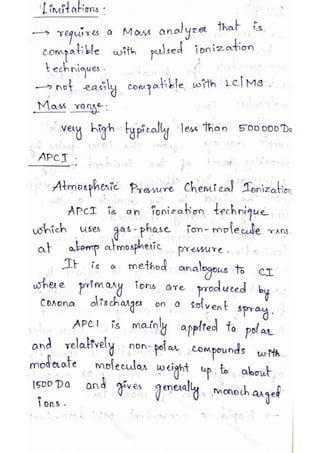 Limitations :
→ requires a Mass analyzer that is
compatible with pulsed ionization
techniques.
→ not easily compatible with LC/MS.
Mass range:
very high typically less than 500000 Da
APCI :
Atmospheric Pressure Chemical Ionization
APCI is an ionization technique
which uses gas-phase ion-molecule rxns.
at atomp atmospheric pressure.
It is a method analogous to CI
where primary ions are produced by
corona discharges on a solvent spray.
APCI is mainly applied to polar
and relatively non-polar compounds with
moderate molecular weight up to about
1500 Da and gives generally monocharged
ions.